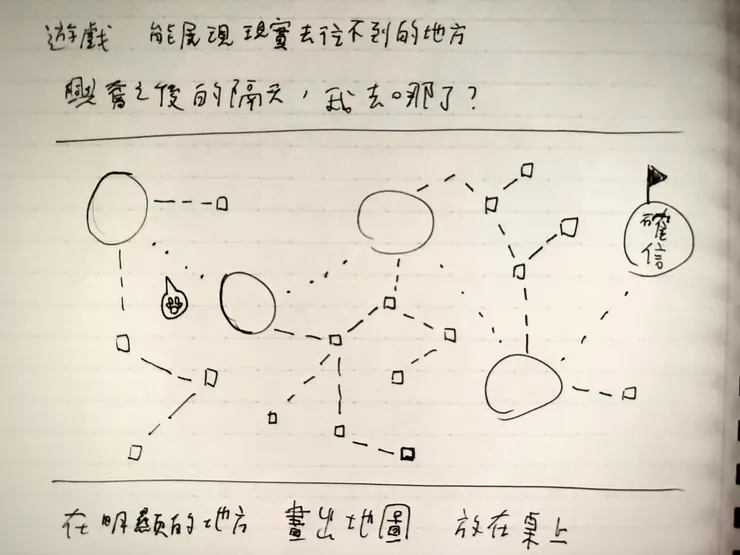 遊戲 能展現現實去往不到的地方
興奮之後的隔天，我去哪了？
確信
在明顯的地方 畫出地圖 放在桌上